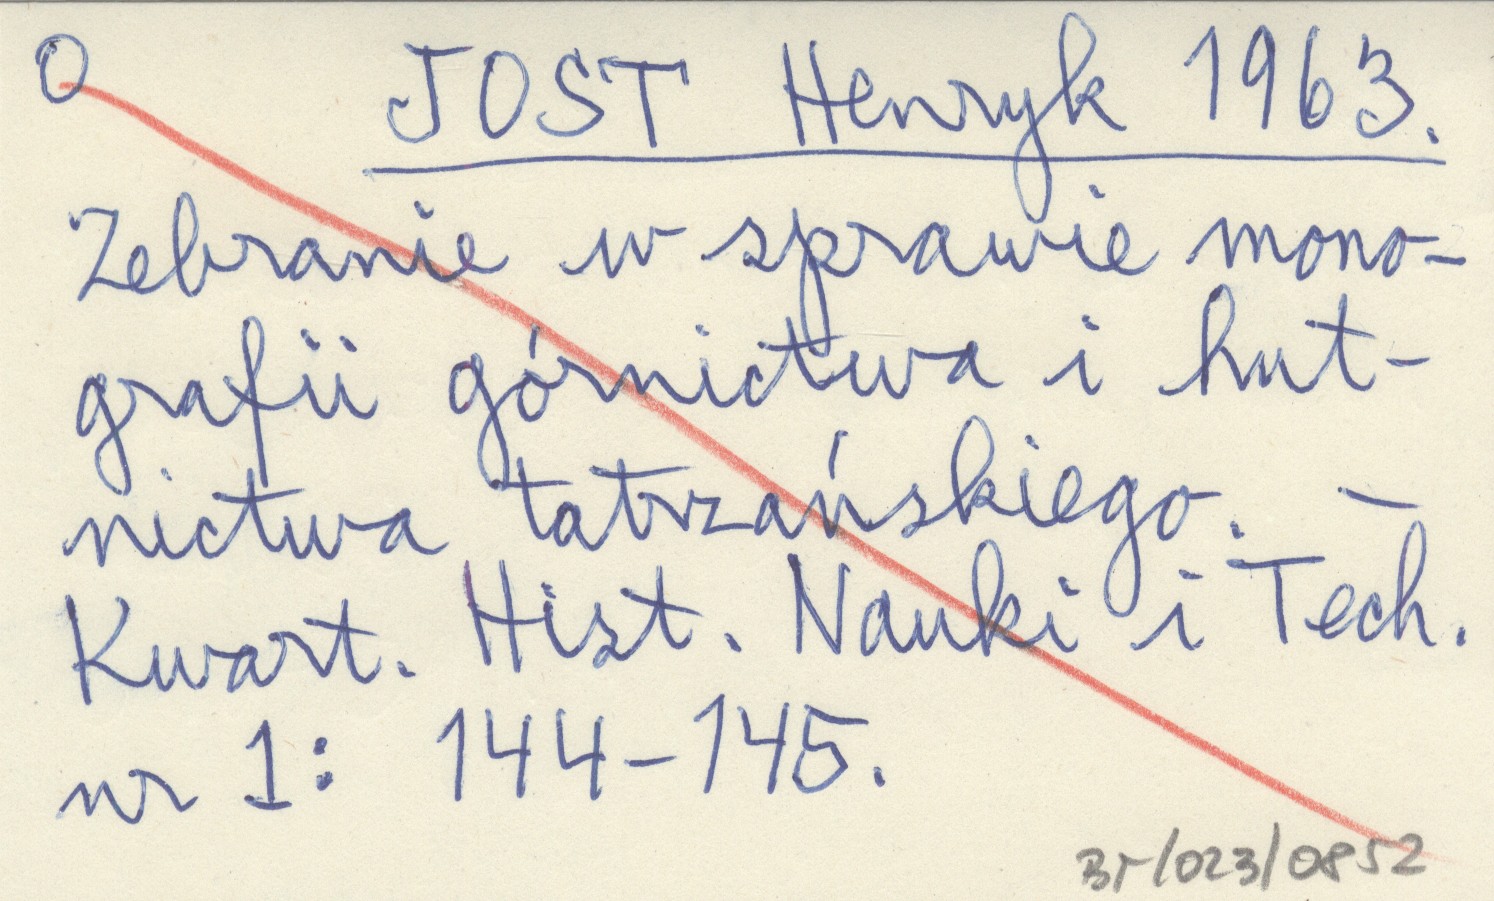 O JOST Henryk 1963.
Zebranie w sprawie mono-
grafii górnictwa i hut-
nictwa tatrzańskiego. –
Kwart. Hist. Nauki i Tech.
nr 1: 144-145.
BT/023/0852